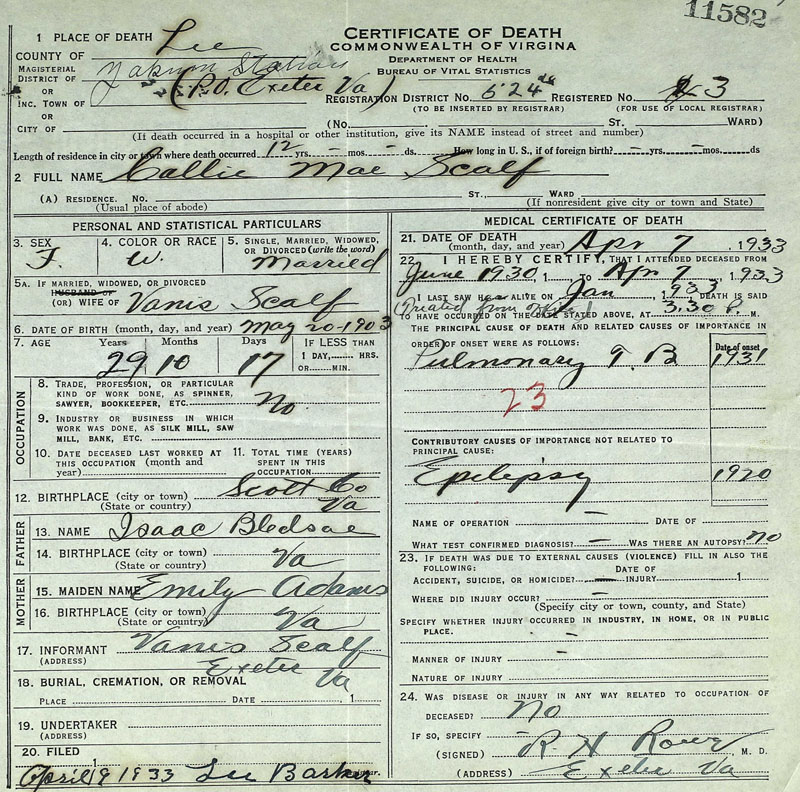 11582
CERTIFICATE OF DEATH
COMMONWEALTH OF VIRGINA
DEPARTMENT OF HEALTH
BUREAU OF VITAL STATISTICS
1 PLACE OF DEATH Lee
COUNTY OF
MAGISTERIAL DISTRICT OF Yokum Station
OR
INC. TOWN OF (P.O. Exeter Va)
REGISTRATION DISTRICT No. 524 REGISTERED No. 3
(TO BE INSERTED BY REGISTRAR) (FOR USE OF LOCAL REGISTRAR)
OR
CITY OF (No. ST. WARD)
(If death occurred in a hospital or other institution, give its NAME instead of street and number)
Length of residence in city or town where death occurred 12 yrs. – mos. – ds. How long in U. S., if of foreign birth? – yrs. – mos. ds.
2 FULL NAME Callie Mae Scalf
(A) RESIDENCE. No. ST., WARD
(Usual place of abode) (If nonresident give city or town and State)
PERSONAL AND STATISTICAL PARTICULARS
3. SEX F. 4. COLOR OR RACE W. 5. SINGLE, MARRIED, WIDOWED, OR DIVORCED (write the word) Married
5A. IF MARRIED, WIDOWED, OR DIVORCED
HUSBAND OF
(OR) WIFE OF Vanis Scalf
6. DATE OF BIRTH (month, day, and year) May 20-1903
7. AGE Years 29 Months 10 Days 17 IF LESS THAN 1 DAY, HRS. OR MIN.
OCCUPATION
8. TRADE, PROFESSION, OR PARTICULAR KIND OF WORK DONE, AS SPINNER, SAWYER, BOOKKEEPER, ETC. No.
9. INDUSTRY OR BUSINESS IN WHICH WORK WAS DONE, AS SILK MILL, SAW MILL, BANK, ETC.
10. DATE DECEASED LAST WORKED AT THIS OCCUPATION (month and year)
11. TOTAL TIME (YEARS) SPENT IN THIS OCCUPATION
12. BIRTHPLACE (city or town) Scott Co
(State or country) Va
FATHER
13. NAME Isaac Bledsoe
14. BIRTHPLACE (city or town)
(State or country) Va
MOTHER
15. MAIDEN NAME Emily Adams
16. BIRTHPLACE (city or town)
(State or country) Va
17. INFORMANT Vanis Scalf
(ADDRESS) Exeter Va
18. BURIAL, CREMATION, OR REMOVAL
PLACE DATE , 1
19. UNDERTAKER
(ADDRESS)
20. FILED
April 9 1933 Lee Barker
MEDICAL CERTIFICATE OF DEATH
21. DATE OF DEATH (month, day, and year) Apr 7, 1933
22. I HEREBY CERTIFY, THAT I ATTENDED DECEASED FROM
June 1930, TO Apr 7, 1933
I LAST SAW H ALIVE ON Jan, 1933 DEATH IS SAID
(Treated from office)
TO HAVE OCCURRED ON THE DATE STATED ABOVE, AT 3.30 P. M.
THE PRINCIPAL CAUSE OF DEATH AND RELATED CAUSES OF IMPORTANCE IN
ORDER OF ONSET WERE AS FOLLOWS: Date of onset
Pulmonary T. B 1931
23
CONTRIBUTORY CAUSES OF IMPORTANCE NOT RELATED TO
PRINCIPAL CAUSE:
Epilipsy 1920
NAME OF OPERATION – DATE OF
WHAT TEST CONFIRMED DIAGNOSIS? – WAS THERE AN AUTOPSY? no
23. IF DEATH WAS DUE TO EXTERNAL CAUSES (VIOLENCE) FILL IN ALSO THE
FOLLOWING:
ACCIDENT, SUICIDE, OR HOMICIDE? – DATE OF INJURY 1
WHERE DID INJURY OCCUR? –
(Specify city or town, county, and State)
SPECIFY WHETHER INJURY OCCURRED IN INDUSTRY, IN HOME, OR IN PUBLIC
PLACE. –
MANNER OF INJURY –
NATURE OF INJURY
24. WAS DISEASE OR INJURY IN ANY WAY RELATED TO OCCUPATION OF
DECEASED? No
IF SO, SPECIFY
(SIGNED) R. H. M. D.
(ADDRESS) Exeter Va